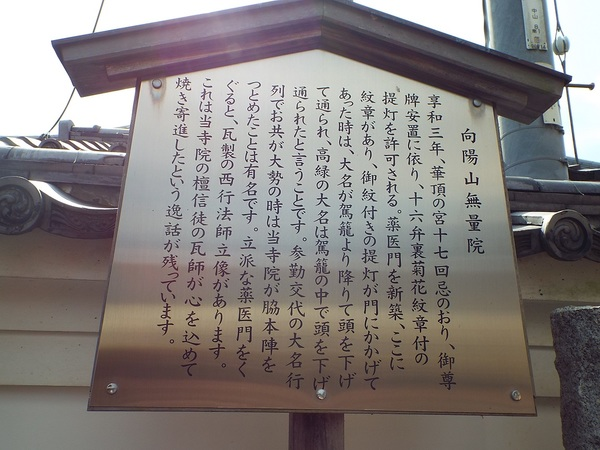 向陽山無量院
享和三年、華頂の宮十七回忌のおり、御尊
牌安置に依り、十六弁裏菊花紋章付の
提灯を許可される。薬医門を新築、ここに
紋章があり、御紋付きの提灯が門にかかげて
あった時は、大名が駕籠より降りて頭を下げ
て通られ、高縁の大名は駕籠の中で頭を下げ
通られたと言うことです。参勤交代の大名行
列でお共が大勢の時は当寺院が脇本陣を
つとめたことは有名です。立派な薬医門をく
ぐると、瓦製の西行法師立像があります。
これは当寺院の檀信徒の瓦師が心を込めて
焼き寄進したという逸話が残っています。